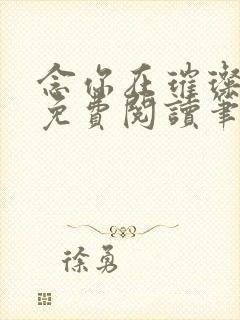 念你在璀璨
免費閱讀筆
徐勇